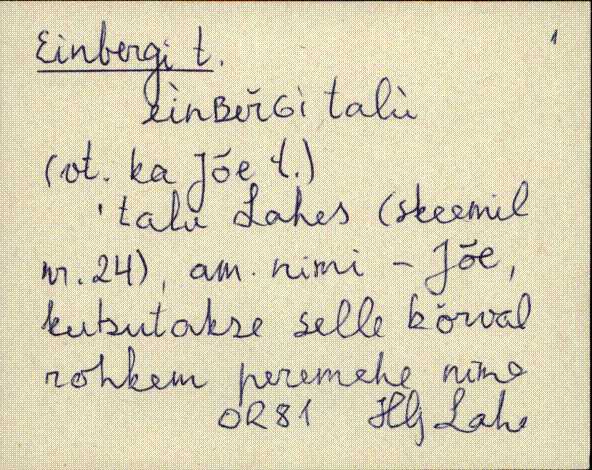 Einbergi t. 1
èinʙĕrɢi talù
(vt. ka Jõe t.)
'talu Lahes (skeemil
nr. 24), am. nimi – Jõe,
kutsutakse selle kõrval
rohkem peremehe nime
OR 81 Hlj Lahe